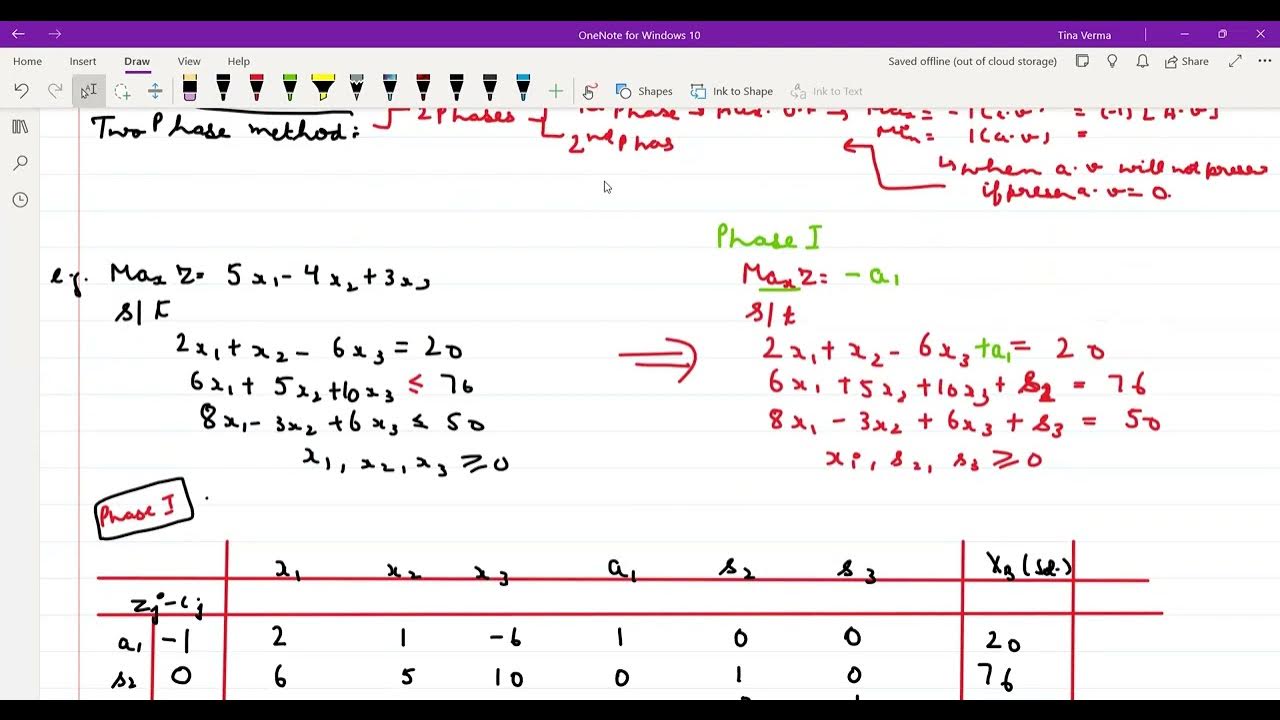 OneNote for Windows 10
Tina Verma
Home Insert Draw View Help
Saved offline (out of cloud storage) Share
Shapes Ink to Shape Ink to Text
Two Phase method:
2 Phases
Phase
2nd Phas
Min = 1(a.v) =
when a.v will not preser
if presen a.v = 0.
Phase I
e.g. Max Z = 5x₁ - 4x₂ + 3x₃
s/t
2x₁ + x₂ - 6x₃ = 20
6x₁ + 5x₂ + 10x₃ ≤ 76
8x₁ - 3x₂ + 6x₃ ≤ 50
x₁, x₂, x₃ ≥ 0
⇒
Max Z = -a₁
s/t
2x₁ + x₂ - 6x₃ + a₁ = 20
6x₁ + 5x₂ + 10x₃ + s₂ = 76
8x₁ - 3x₂ + 6x₃ + s₃ = 50
xᵢ, s₂, s₃ ≥ 0
Phase I
x₁ x₂ x₃ a₁ s₂ s₃ X_B (Sol.)
Zj - Cj
a₁ -1 2 1 -6 1 0 0 20
s₂ 0 6 5 10 0 1 0 76